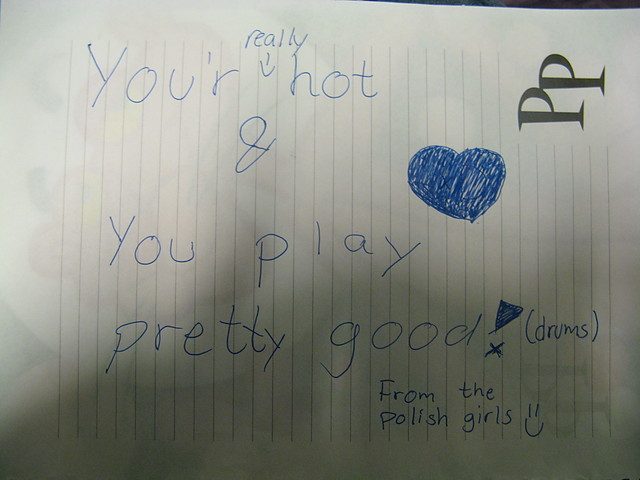 You'r really hot
&
You play
pretty good! (drums)
From the
polish girls
PP